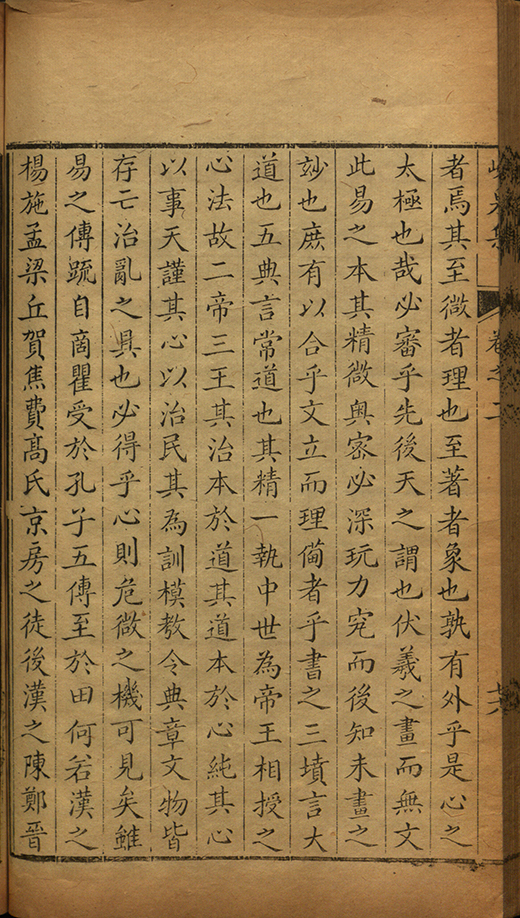 者焉其至微者理也至著者象也孰有外乎是心之
太極也哉必審乎先後天之謂也伏羲之畫而無文
此易之本其精微奥宻必深玩力究而後知未畫之
玅也庶有以合乎文立而理僃者乎書之三墳言大
道也五典言常道也其精一執中世為帝王相授之
心法故二帝三王其治本於道其道本於心純其心
以事天謹其心以治民其為訓模教令典章文物皆
存亡治亂之具也必得乎心則危微之機可見矣雖
易之傳䟽自商瞿受於孔子五傳至於田何若漢之
楊施孟梁丘賀焦費髙氏京房之徒後漢之陳鄭晋